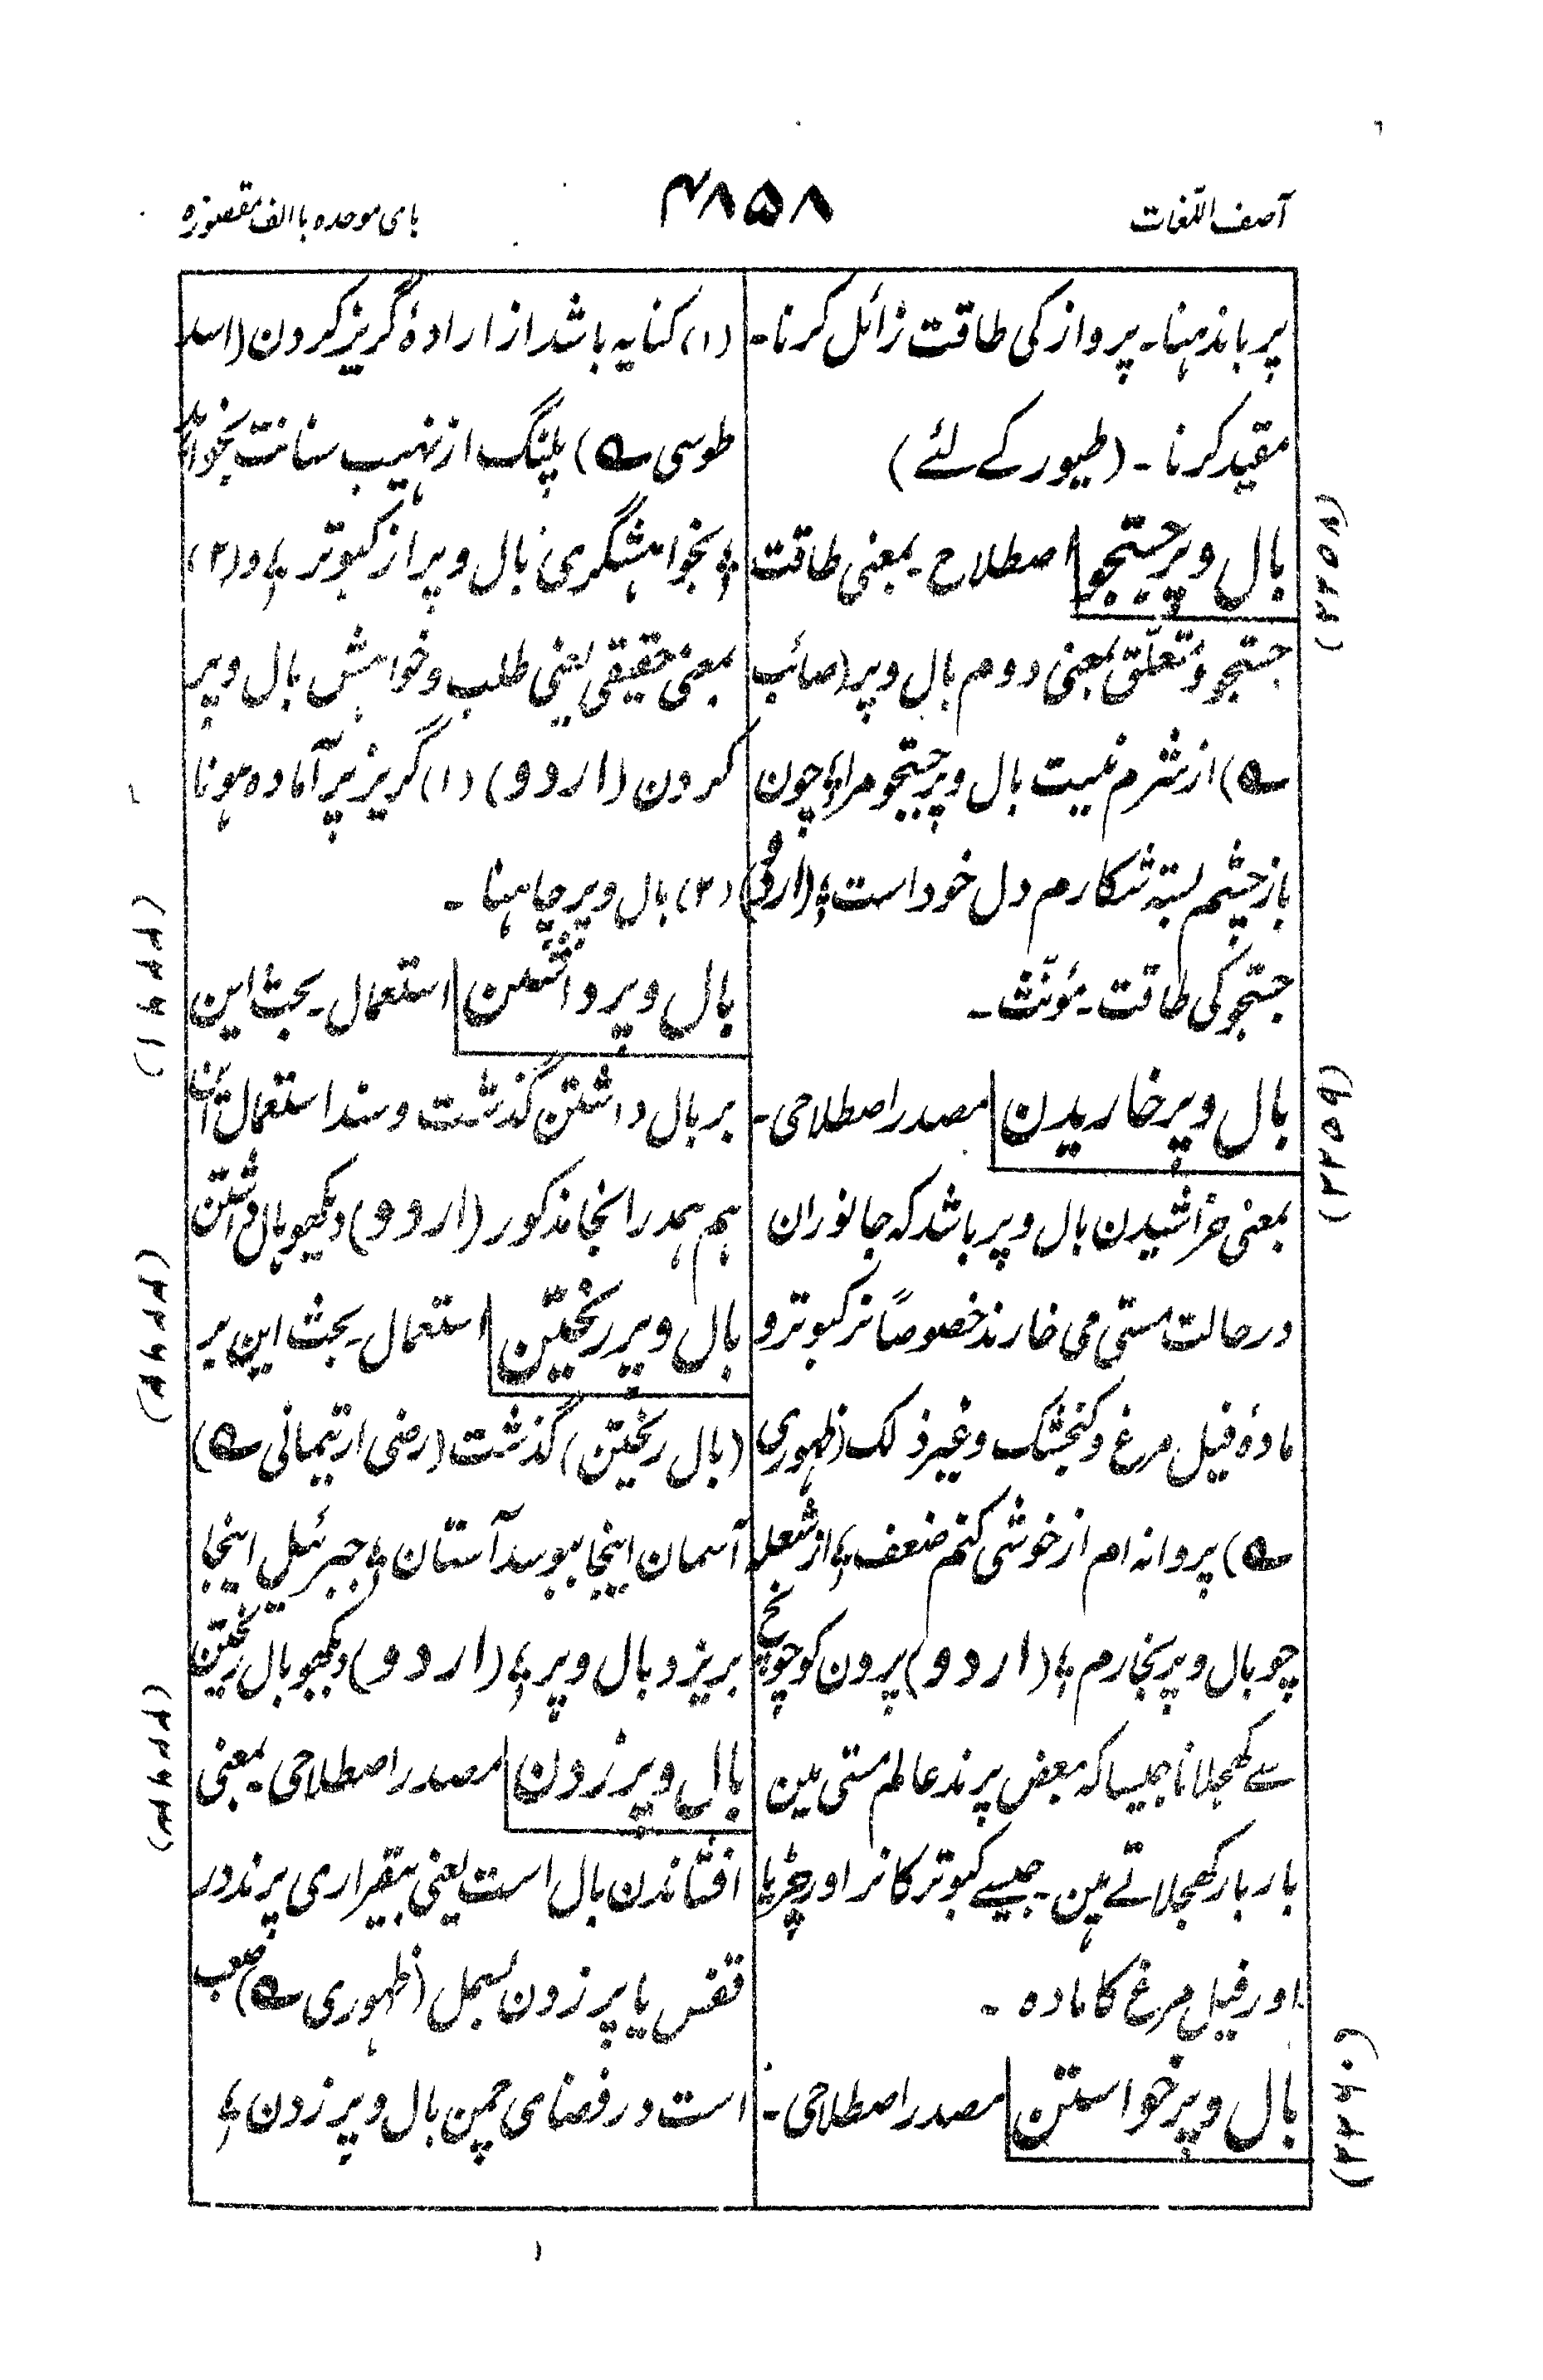 آصف اللّغات
۴۸۵۸
بای موحده با الف مقصوره
پر باندہنا۔ پرواز کی طاقت زائل کرنا۔
مقید کرنا ۔ (طیور کے لئے)
بال و پر جستجو اصطلاح ۔ بمعنی طاقت
جستجو و متعلّق بمعنی دوم بال و پر (صائب
ے) از شرم نیست بال و پر جستجو مرا ؛ چون
باز چشم بستہ شکارم دل خود است ؛ (اردو)
جستجو کی طاقت ۔ مؤنّث ۔
بال و پر خاریدن مصدر اصطلاحی ۔
بمعنی خراشیدن بال و پر باشد کہ جانوران
در حالت مستی می خارند خصوصاً نر کبوتر و
مادۂ فیل مرغ و کنجشک و غیر ذلک (ظہوری
ے) پروانہ ام از خوشی کنم ضعف ؛ از شعلہ
چو بال و پر بخارم ؛ (اردو) پرون کو چونچ
سے کھجلانا جیسا کہ بعض پرند عالم مستی مین
بار بار کھجلاتے ہین ۔ جیسے کبوتر کا نر اور چڑیا
اور فیل مرغ کا مادہ ۔
بال و پر خواستن مصدر اصطلاحی ۔
(۲۲۵۸)
(۲۲۵۹)
(۲۲۶۰)
(۱) کنایہ باشد از ارادۂ گریز کردن (اسد
طوسی ے) پلنگ از نہیب سنانت بخواہد
؛ بخواہشگری بال و پر از کبوتر ؛ و (۲)
بمعنی حقیقی یعنی طلب و خواہش بال و پر
کردن (اردو) (۱) گریز پر آمادہ ہونا
(۲) بال و پر چاہنا ۔
بال و پر داشتن استعمال ۔ بحث این
بر بال داشتن گذشت و سند استعمال این
ہم ہمدرانجا مذکور (اردو) دیکھو بال داشتن
بال و پر ریختن استعمال ۔ بحث این بر
(بال ریختن) گذشت (رضی ارتیمانی ے)
آسمان اینجا ببوسد آستان ؛ جبرئیل اینجا
بریزد بال و پر ؛ (اردو) دیکھو بال ریختن
بال و پر زدن مصدر اصطلاحی ۔ بمعنی
افشاندن بال است یعنی بیقراری پرند در
قفس یا پر زدن بسمل (ظہوری ے) صعب
است در فضای چمن بال و پر زدن ؛
(۲۲۶۱)
(۲۲۶۲)
(۲۲۶۳)